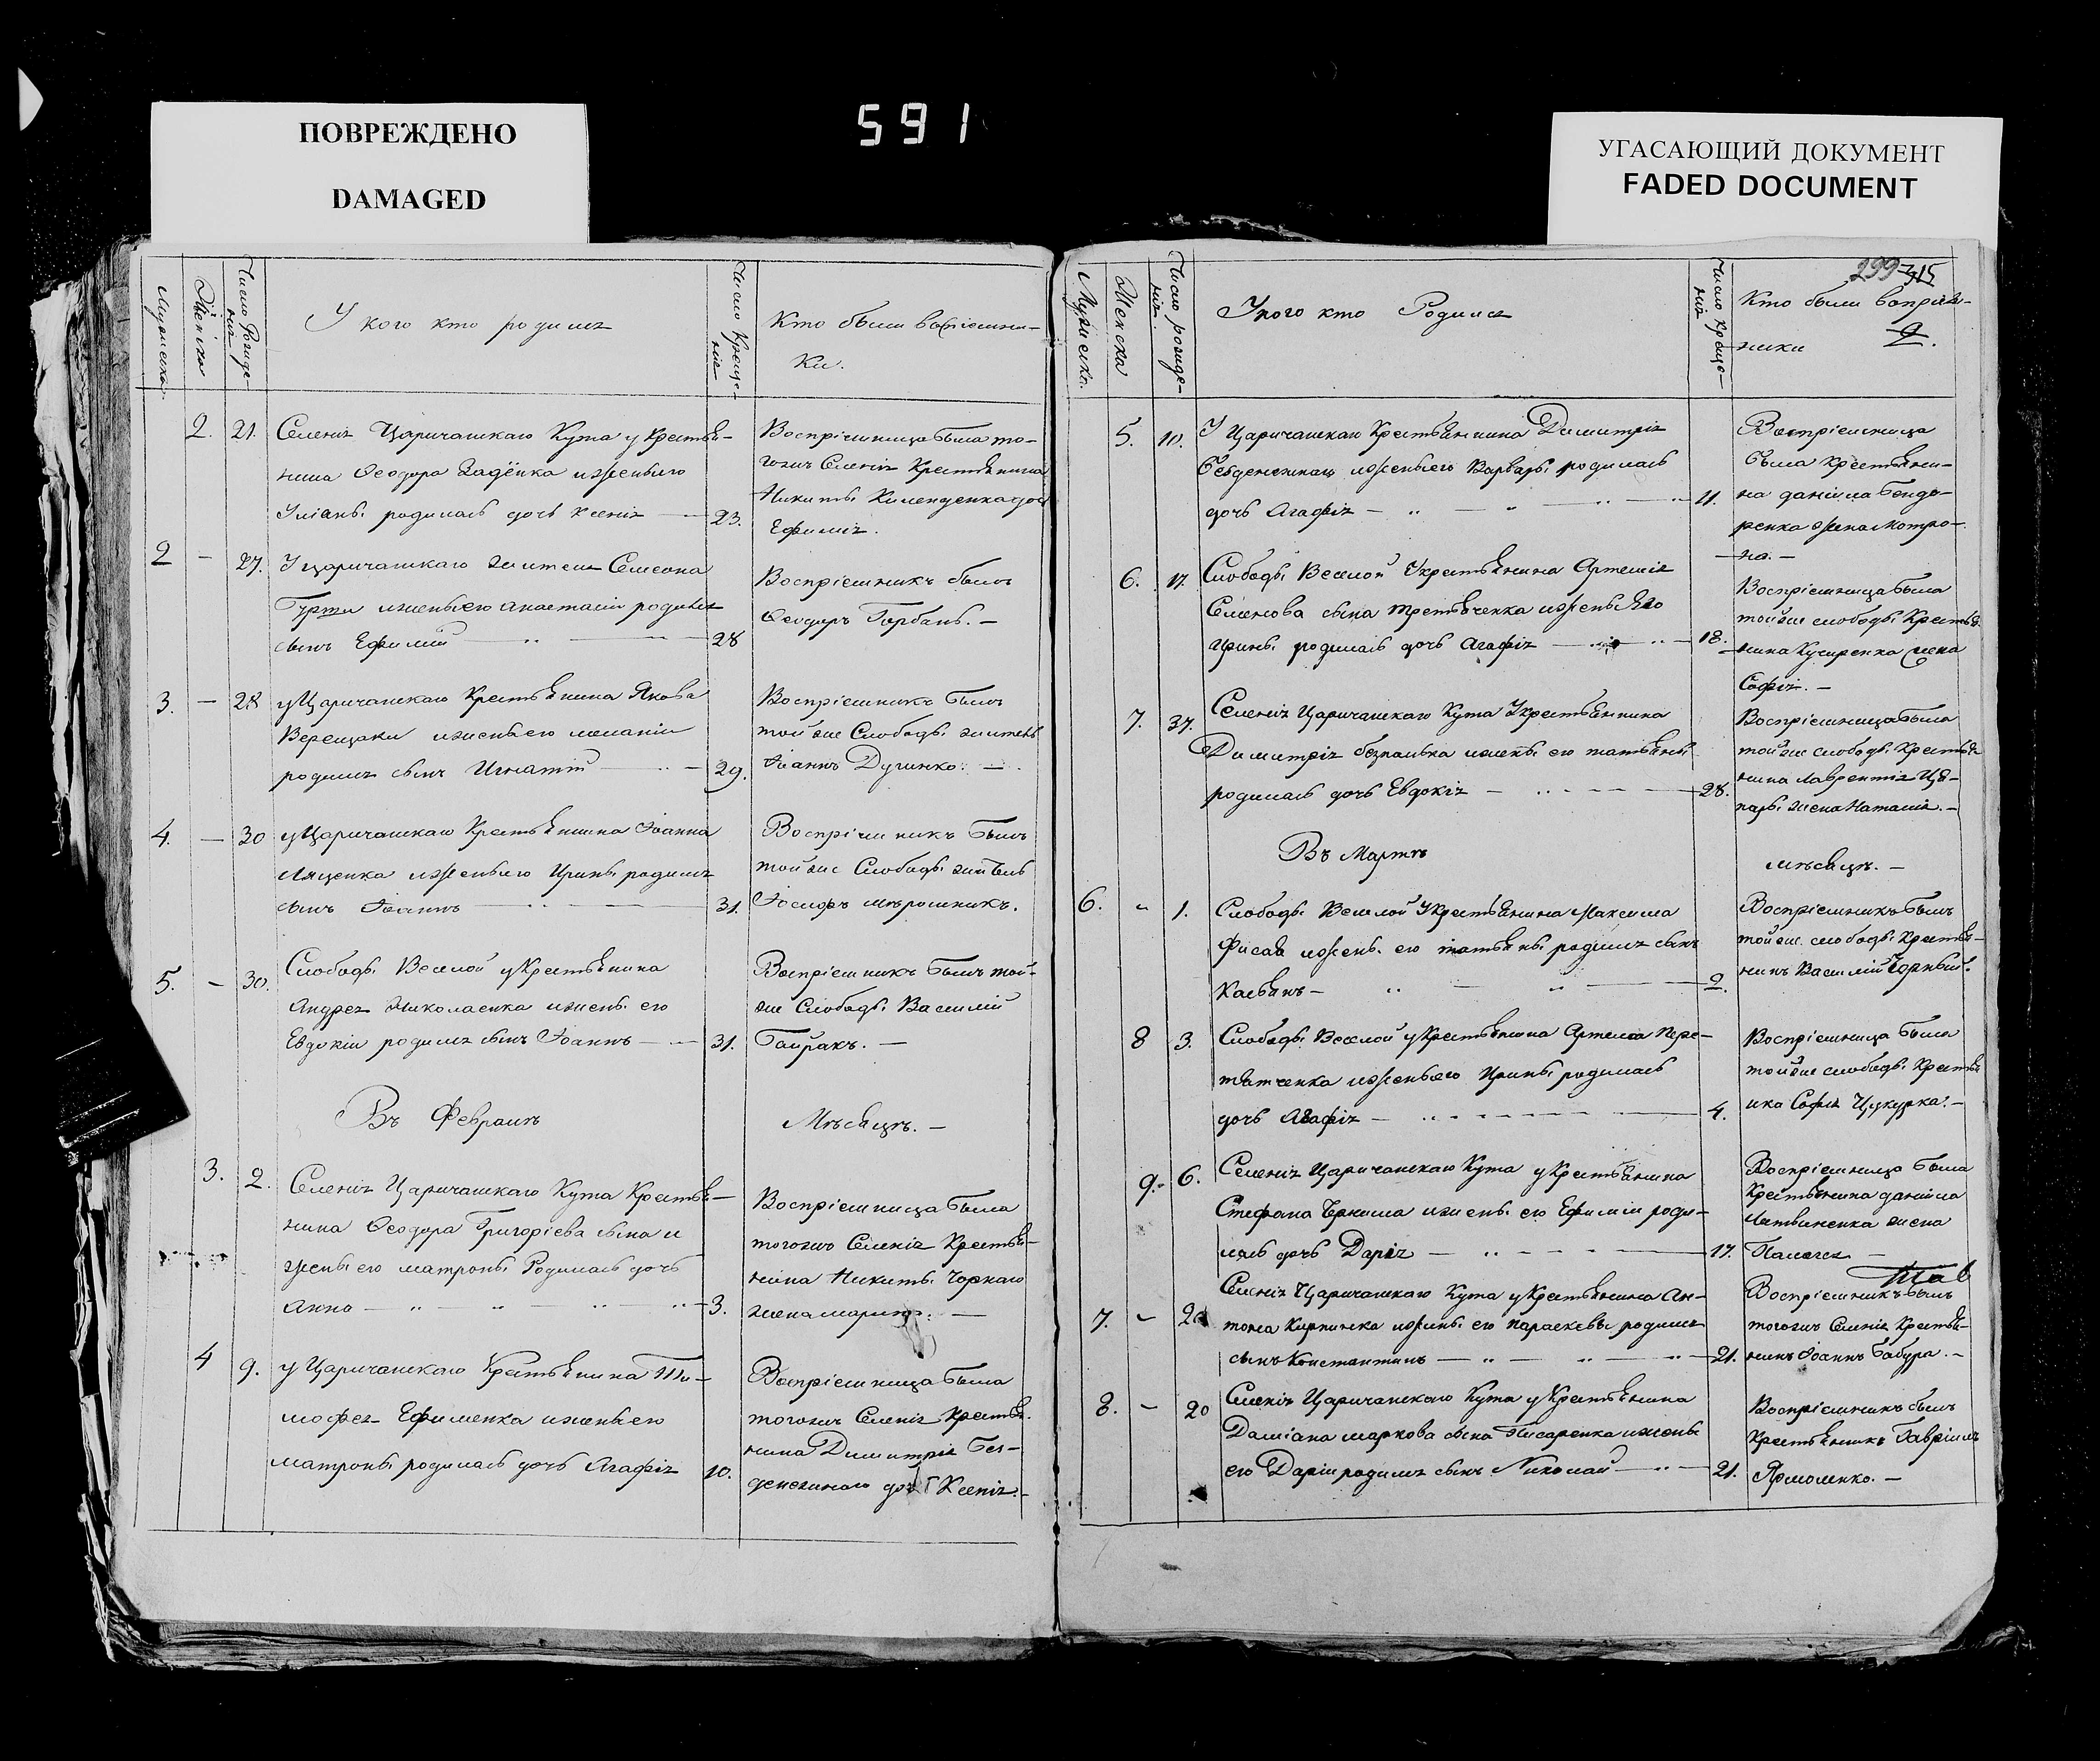 ПОВРЕЖДЕНО
DAMAGED
591
УГАСАЮЩИЙ ДОКУМЕНТ
FADED DOCUMENT
Мужеска
Женска
Число Рожде-
нія
У кого кто родился
Число Креще-
нія
Кто были воспіемни-
ки.
2. 21. Селенія Царичанскаго Кута у Крестья-
нина Феодора изженыего
Уліаны родилась дочь Ксенія 23.
Воспріемница была то-
гожъ Селенія Крестьянина
Никиты дочь
Ефимія.
2 — 27. У царичанскаго жителя Семеона
изженыего анастасіи родился
сынъ Ефимій 28
Воспріемникъ былъ
Феодоръ Горбань. —
3. — 28 у Царичанскаго Крестьянина Якова
Верещаки изженыего меланіи
родился сынъ Игнатій 29.
Воспріемникъ былъ
той же Слободы житель
Іоаннъ Дученко. —
4. — 30 у Царичанскаго Крестьянина Іоанна
Ляценка изженыего Ирины родился
сынъ Іоаннъ 31.
Воспріемникъ былъ
той же Слободы житель
Іосифъ мѣрошникъ.
5. — 30. Слободы Веселой у Крестьянина
Андрея Николаенка изжены его
Евдокіи родился сынъ Іоаннъ — 31.
Воспріемникъ былъ той-
же Слободы Василій
Байракъ. —
Въ Февралѣ Мѣсяцѣ. —
3. 2. Селенія Царичанскаго Кута Крестья-
нина Феодора Григоріева сына и
жены его матроны Родилась дочь
Анна — 3.
Воспріемница была
тогожъ Селенія Крестья-
нина Никиты Чорнаго
жена марія. —
4 9. у Царичанскаго Крестьянина Ти-
мофея Ефименка изженыего
матроны родилась дочь Агафія 10.
Воспріемница была
тогожъ Селенія Крестья-
нина Димитрія Без-
денежнаго дочь Ксенія. —
299 315
Мужеска.
Женска
Число рожде-
нія.
У кого кто Родился
Число Креще-
нія
Кто были воспріем-
ники
5. 10. У Царичанскаго Крестьянина Димитрія
Безденежнаго изженыего Варвары родилась
дочь Агафія — 11.
Воспріемница
была крестьяни-
на даніила Бондо-
ренка жена мотро-
на. —
6. 17. Слободы Веселой У крестьянина Артемія
Семенова сына изженыЕго
Ирины родилась дочь Агафія — 18.
Воспріемница была
той же слободы Крестья
нина жена
Софія. —
7. 27. Селенія Царичанскаго Кута У крестьянина
Димитрія изжены его татьяны
родилась дочь Евдокія — 28.
Воспріемница была
той же слободы Крестья
нина Лаврентія Ца-
пары жена Наталія. —
Въ Мартѣ мѣсяцѣ. —
6. — 1. Слободы Веселой У Крестьянина Максима
изжены его татьяны родился сынъ
— 2.
Воспріемникъ былъ
той же слободы крестья-
нинъ Василій Чорный.
8 3. Слободы Веселой у Крестьянина Артема
изженыего Ирины родилась
дочь Агафія — 4.
Воспріемница была
той же слободы Крестья
нка Софія Цукурка. —
9. 6. Селенія Царичанскаго Кута у Крестьянина
Стефана изжены его Ефиміи роди-
лась дочь Дарія — 17.
Воспріемница была
Крестьянина даніила
Литвиненка жена
Пелагея —
7. — 20 Селенія Царичанскаго Кута у Крестьянина Ан-
тона изжены его параскевы родился
сынъ Константинъ — 21.
Воспріемникъ былъ
тогожъ Селенія Крестья-
нинъ Іоаннъ Бабура. —
8. — 20 Селенія Царичанскаго Кута у Крестьянина
Даміана маркова сына Писаренка изжены
его Даріи родился сынъ Николай — 21.
Воспріемникъ былъ
Крестьянинъ Гавріилъ
Ярмоленко. —